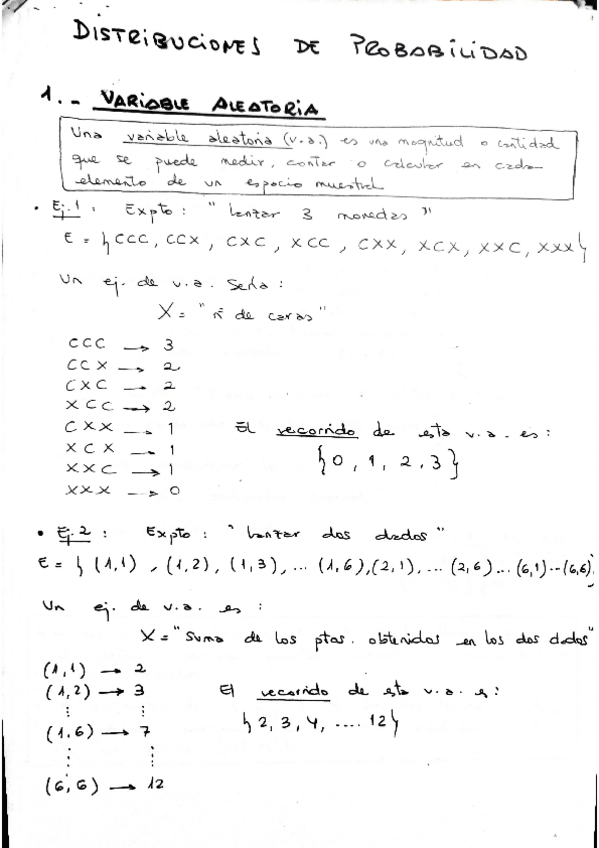 DISTRIBUCIONES DE PROBABILIDAD
1.- VARIABLE ALEATORIA
Una variable aleatoria (v.a.) es una magnitud o cantidad
que se puede medir, contar o calcular en cada
elemento de un espacio muestral
• Ej.1: Expto: "lanzar 3 monedas"
E = {CCC, CCX, CXC, XCC, CXX, XCX, XXC, XXX}
Un ej. de v.a. sería:
X = "nº de caras"
CCC → 3
CCX → 2
CXC → 2
XCC → 2
CXX → 1
El recorrido de esta v.a. es:
XCX → 1
{0, 1, 2, 3}
XXC → 1
XXX → 0
• Ej.2: Expto: "lanzar dos dados"
E = {(1,1), (1,2), (1,3), ... (1,6), (2,1), ... (2,6) ... (6,1) -- (6,6)
Un ej. de v.a. es:
X = "Suma de los ptas. obtenidas en los dos dados"
(1,1) → 2
(1,2) → 3
El recorrido de esta v.a. es:
⋮ ⋮
{2, 3, 4, .... 12}
(1,6) → 7
⋮ ⋮
(6,6) → 12